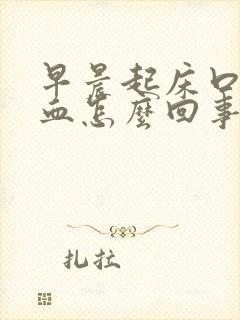 早晨起床口
血怎麼回事
扎拉